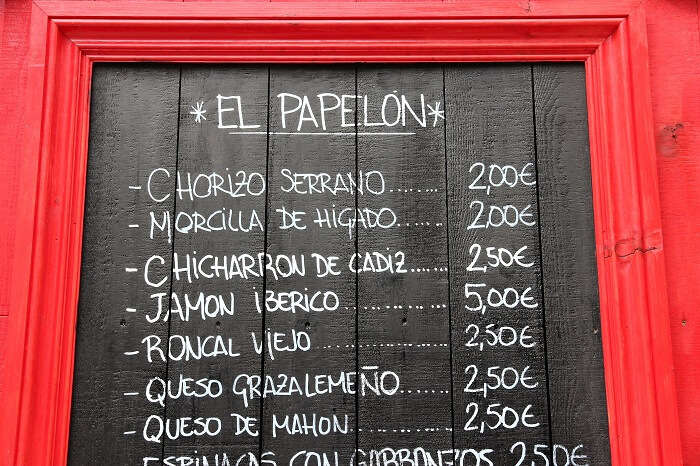 * EL PAPELÓN *
- CHORIZO SERRANO........ 2,00€
- MORCILLA DE HÍGADO....... 2,00€
- CHICHARRON DE CADIZ...... 2,50€
- JAMON IBERICO.............. 5,00€
- RONCAL VIEJO................. 2,50€
- QUESO GRAZALEMEÑO....... 2,50€
- QUESO DE MAHON............ 2,50€
ESPINACAS CON GARBANZOS 2,50€